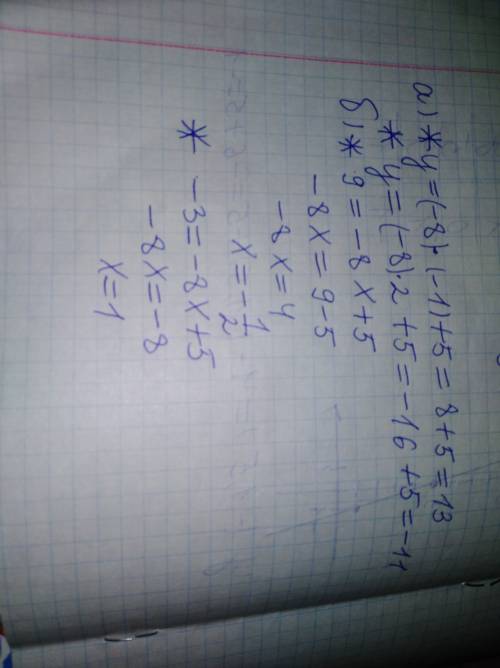 а) * y = (-8)·(-1)+5 = 8+5 = 13
* y = (-8)·2 +5 = -16 +5 = -11
б) * 9 = -8x+5
-8x = 9-5
-8x = 4
x = -1/2
* -3 = -8x+5
-8x = -8
x = 1